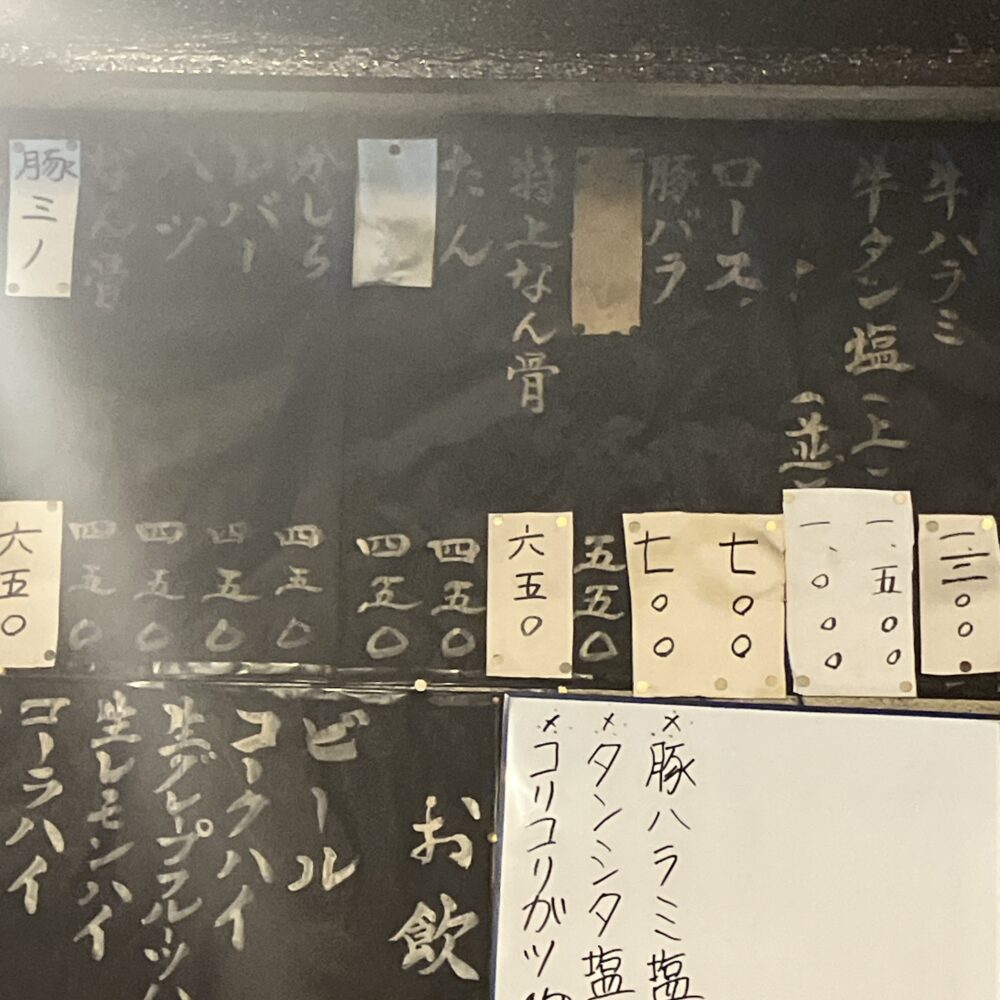 牛ハラミ
牛タン塩（上）
〃（並）
ロース
豚バラ
特上なん骨
たん
かしら
レバー
ハツ
なん骨
豚ミノ
一、五〇〇
一、〇〇〇
七〇〇
七〇〇
五五〇
六五〇
四五〇
四五〇
四五〇
四五〇
四五〇
四五〇
六五〇
×豚ハラミ塩
×タンシタ塩
×コリコリガツ
お飲
ビール
コークハイ
生グレープフルーツハ
生レモンハイ
コーラハイ